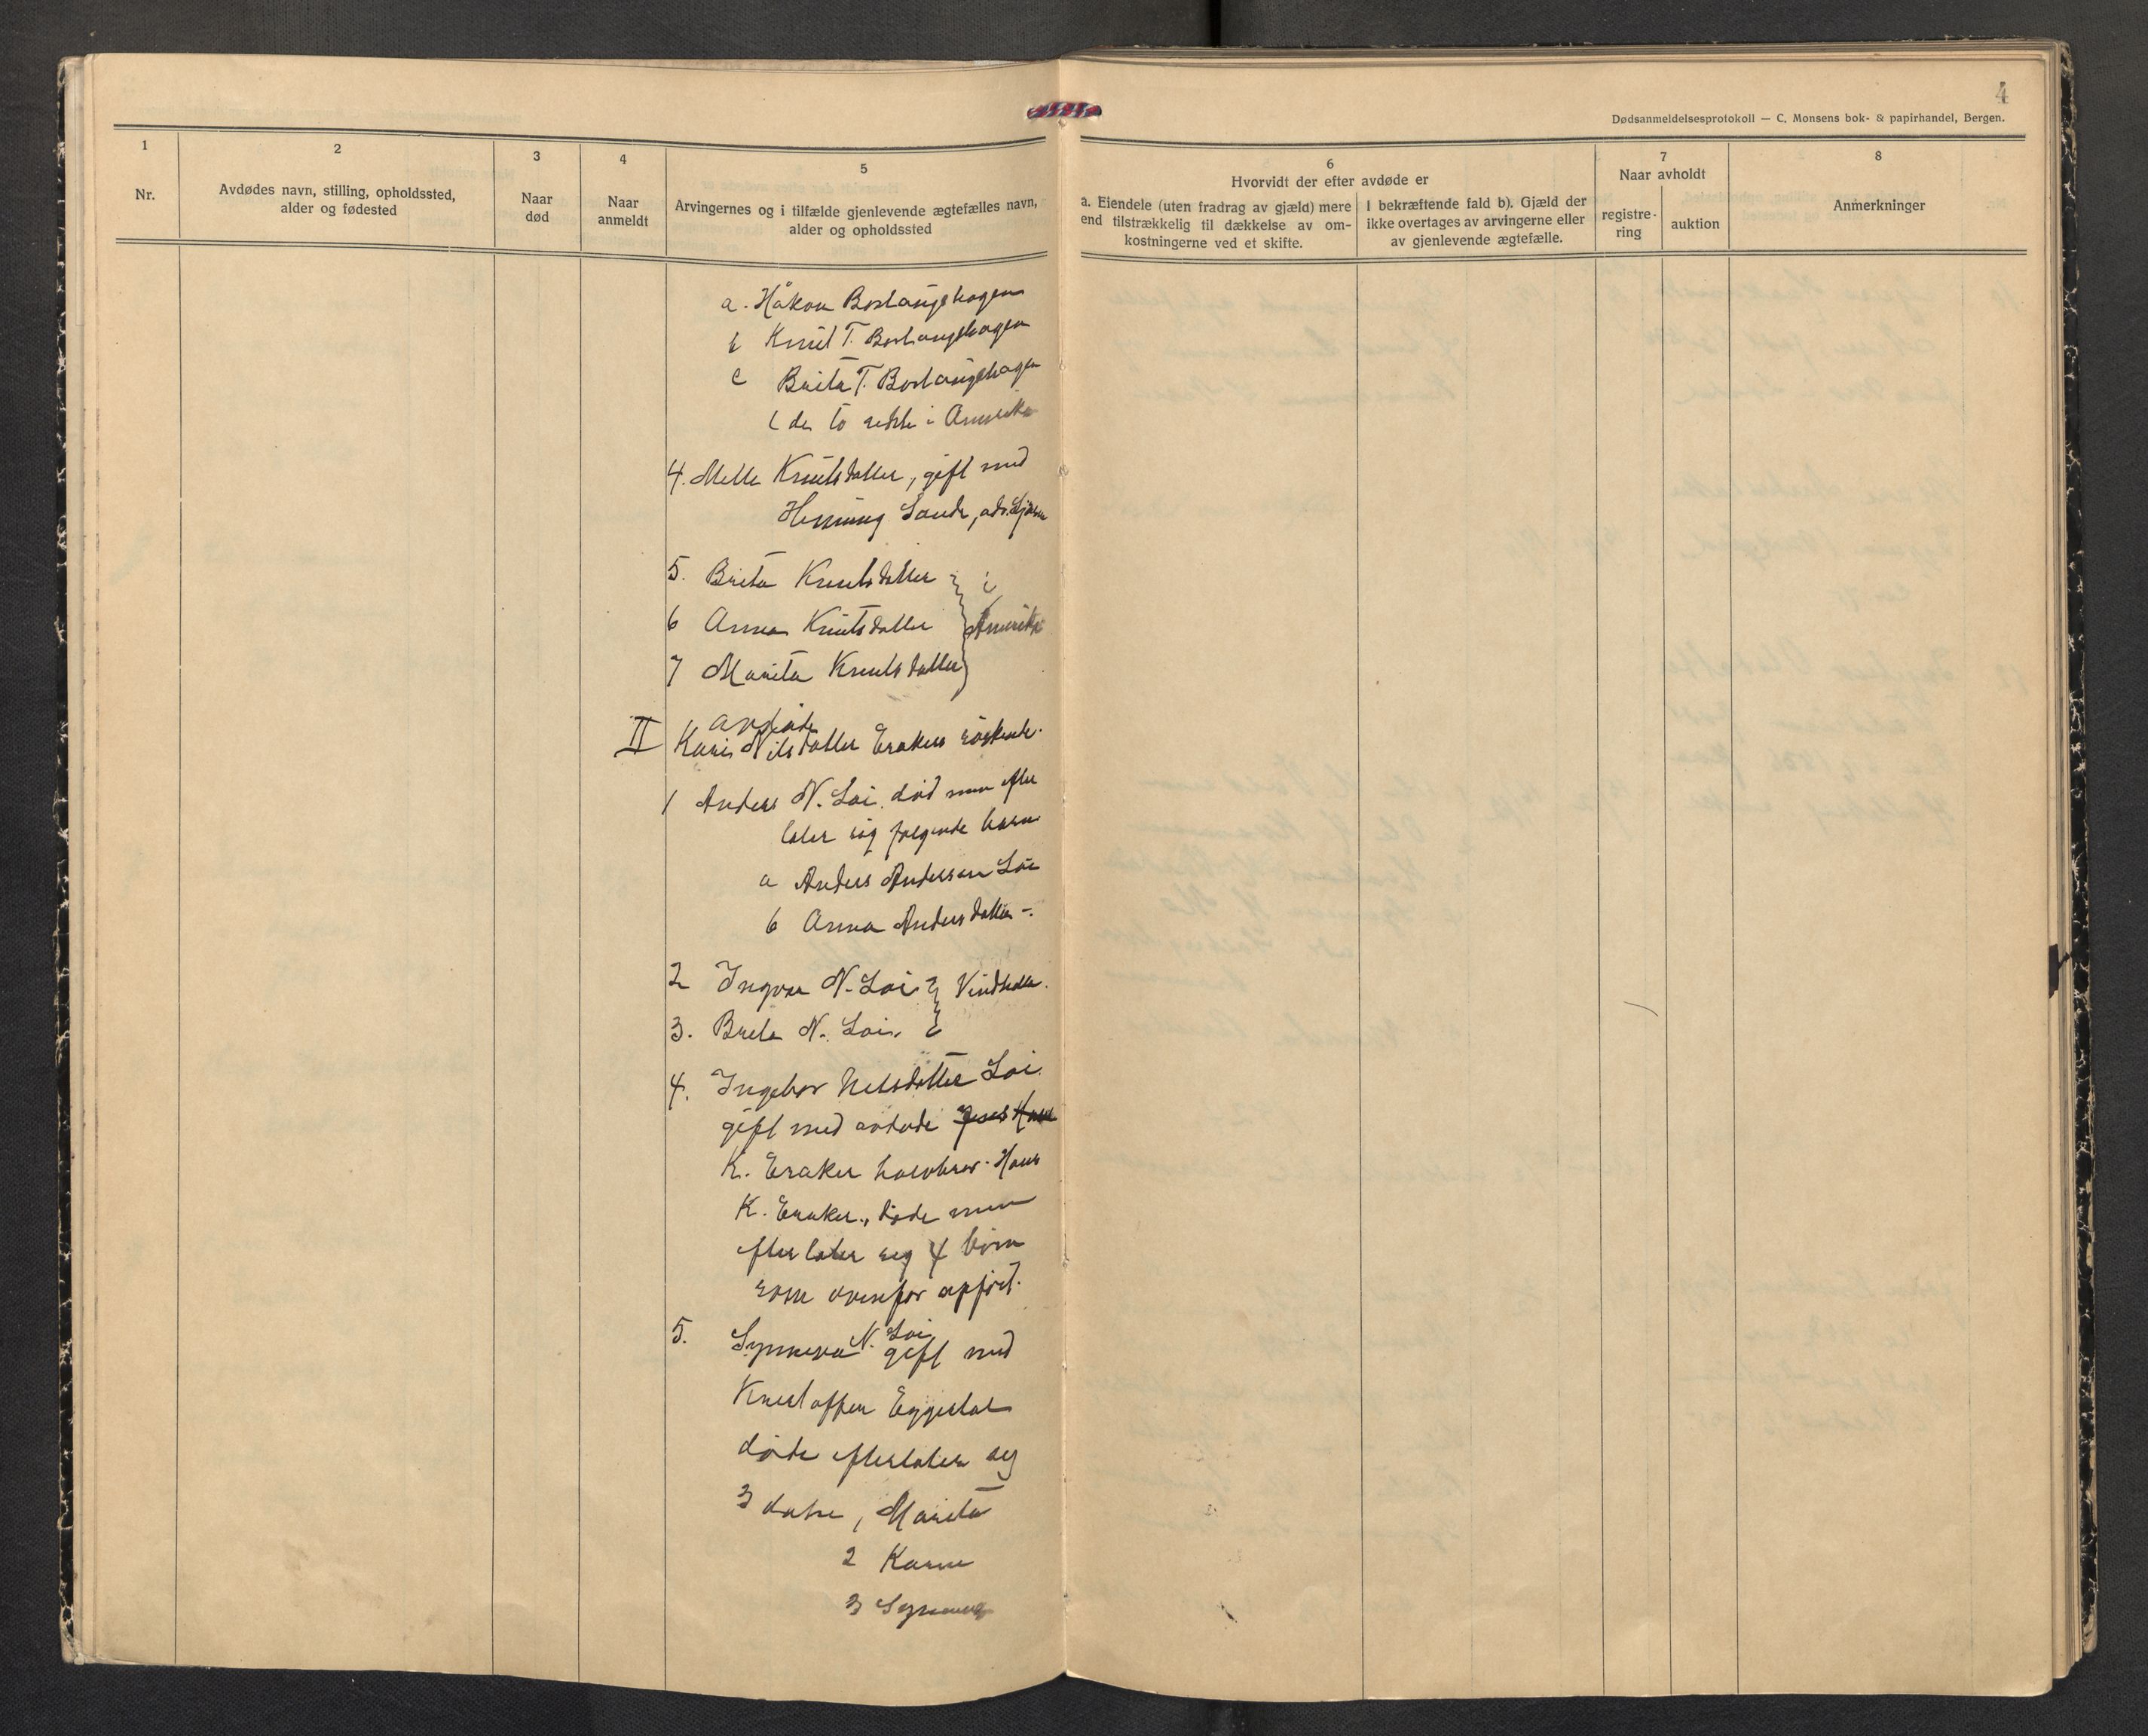 4
Dødsanmeldelsesprotokoll — C. Monsens bok- & papirhandel, Bergen.
1
Nr.
2
Avdødes navn, stilling, opholdssted,
alder og fødested
3
Naar
død
4
Naar
anmeldt
5
Arvingernes og i tilfælde gjenlevende ægtefælles navn,
alder og opholdssted
6
Hvorvidt der efter avdøde er
a. Eiendele (uten fradrag av gjæld) mere
end tilstrækkelig til dækkelse av om-
kostningerne ved et skifte.
I bekræftende fald b). Gjæld der
ikke overtages av arvingerne eller
av gjenlevende ægtefælle.
7
Naar avholdt
registre-
ring
auktion
8
Anmerkninger
a. Håkon Borlaughagen
b Knut T. Borlaughagen
c Brita T. Borlaughagen
( de to sidste i Amerika
4. Melle Knutsdatter, gift med
Henning Sande, adr.
5. Brita Knutsdatter } i
6 Anna Knutsdatter } Amerika
7 Marita Knutsdatter }
II Kari avdøde Nilsdatter Erakers søskende.
1 Anders N. Loi. død men efter
later sig følgende barn
a Anders Anderson Loi
b Anna Andersdatter -.
2 Ingvar N. Loi } Vindhella.
3. Brita N. Loi. }
4. Ingebor Nilsdatter Loi.
gift med avdøde Hans
K. Eraker halvbror Hans
K. Eraker., døde men
efterlater seg 4 born
som ovenfor opført.
5. Synneva N. Loi gift med
Kristoffer Eggestøl
døde efterlater seg
3 døtre, Marita
2 Karin
3 Synneva